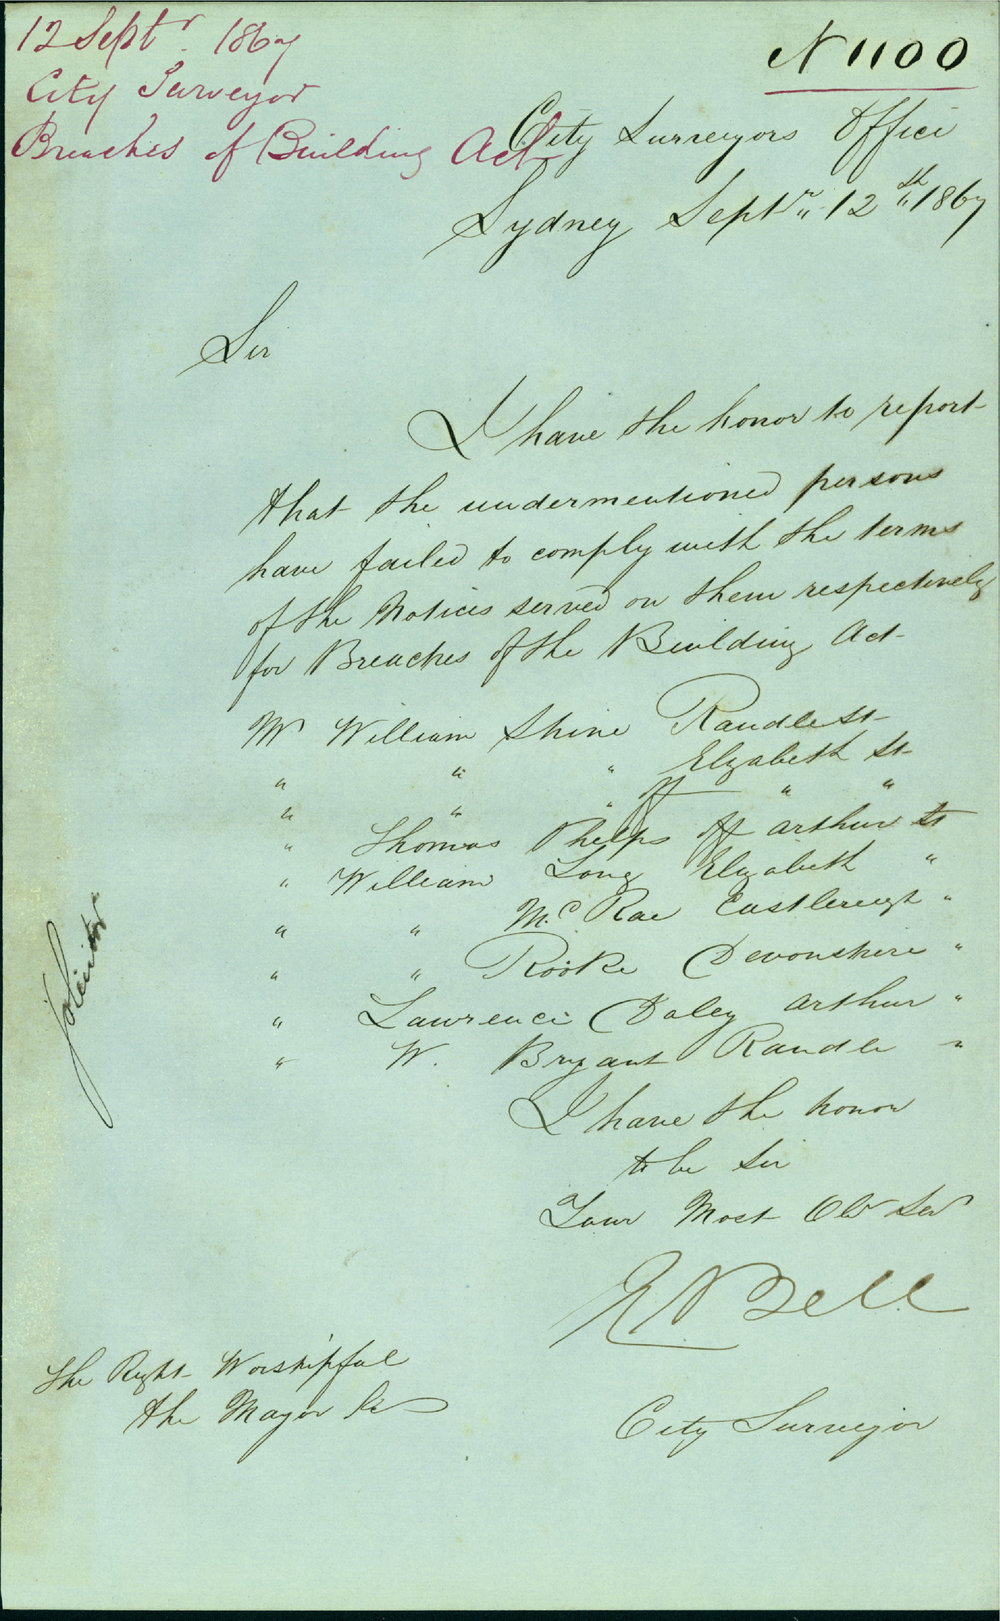 12 Septr. 1867
City Surveyor
Breaches of Building Act
N 1100
City Surveyors Office
Sydney Septr " 12th " 1867
Sir
I have the honor to report
that the undermentioned persons
have failed to comply with the terms
of the Notices served on them respectively
for Breaches of the Building Act
Mr William Shine Randle St
" " " Elizabeth St
" " " off " "
" Thomas Phelps off Arthur St
" William Long Elizabeth "
" " McRae Castlereigh "
" " Rooke Devonshire "
" Lawrence Daley Arthur "
" W. Bryant Randle "
I have the honor
to be Sir
Your Most Obt Sert
E Bell
City Surveyor
The Right Worshipful
the Mayor &c